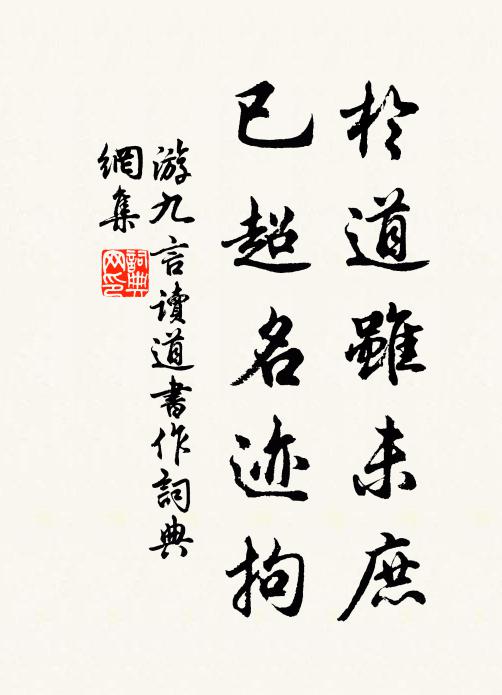 於道雖未庶
已超名迹拘
游九言讀道書作詞典
網集
詞典
网印